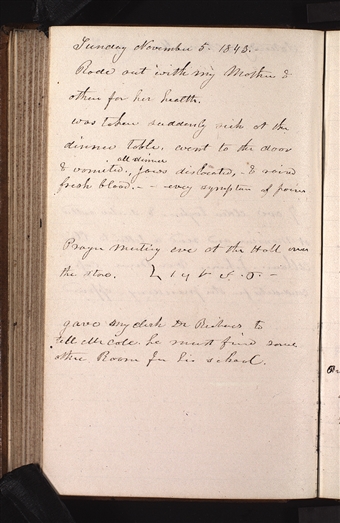 Sunday November 5. 1843.
Rode out with my Mother &
other for her health.
was taken suddenly sick at the
dinner table. went to the door
all dinner
& vomited, jaws dislocated, & raised
fresh blood. - - every symptom of poison
Prayer Meeting eve at the Hall over
the store. L 1 4 S. O. -
gave my desk Dr Richards to
tell Mr Cole he must find some
other Room for his school.